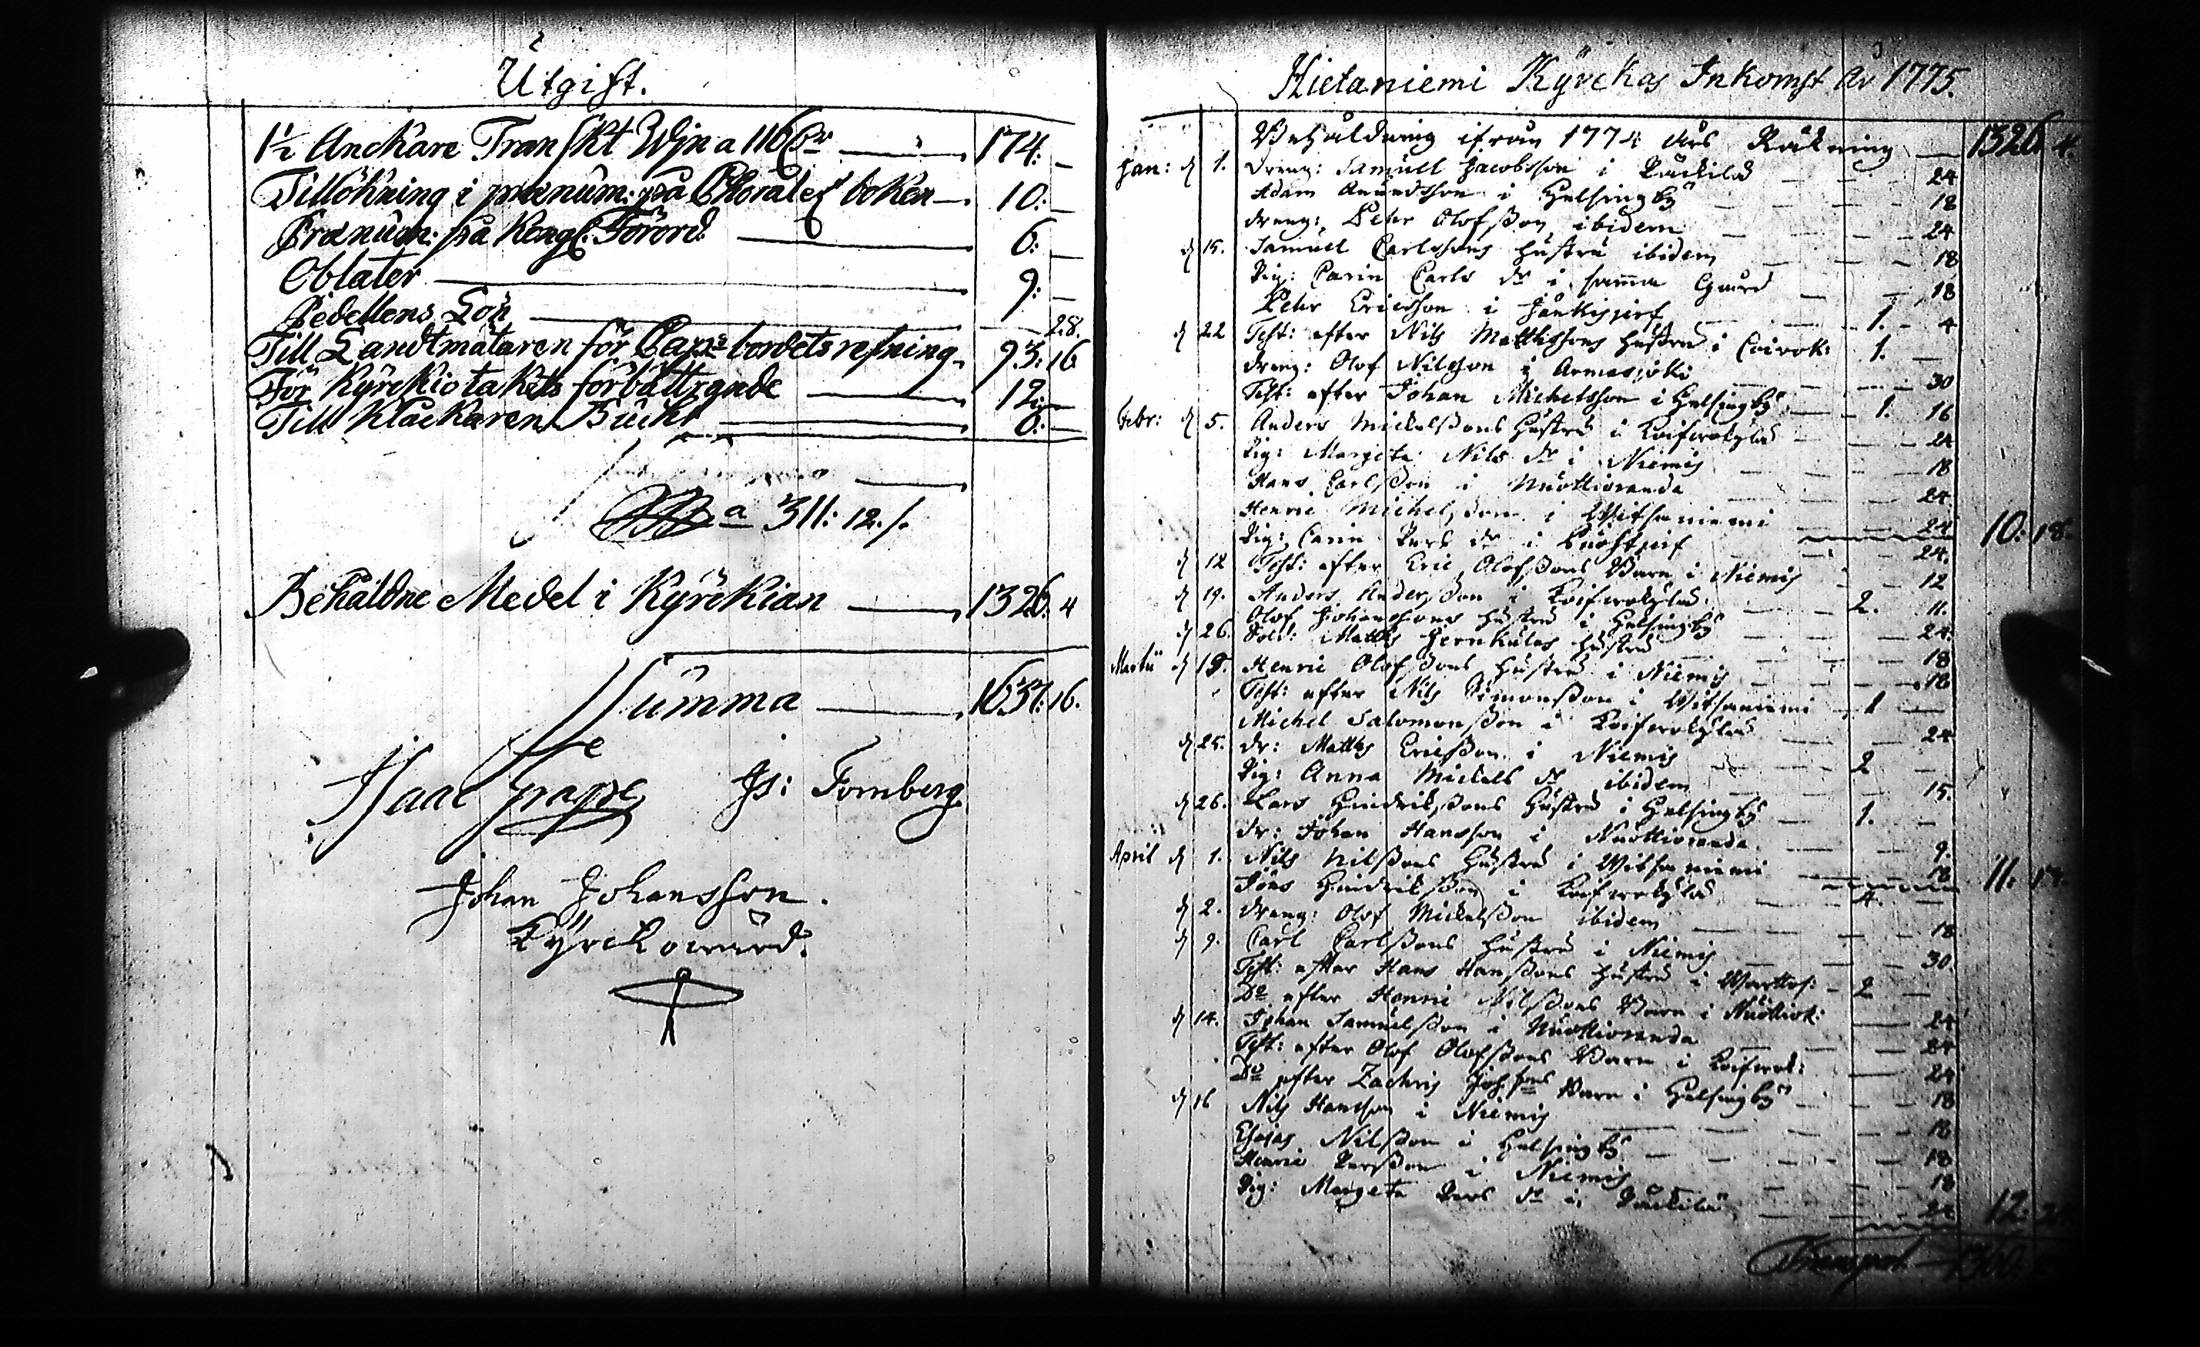 Utgift.
1½ Anckare Transkt Wjn a 116 — 174: —
Tillökning i prænum: på Choral boken — 10: —
Prænum: på Kongl. Förord: — 6: —
Oblater — 9: —
Pedellens Lön — 28.
Till Landtmätaren för bordets refning — 93: 16.
För Kyrckio takets förbättrande — 12: —
Till Klåckaren — 6: —
a 311: 12./.
Behåldne Medel i Kyrckian — 1326. 4
Summa — 1637: 16.
Isaac Grape Js: Fornberg
Johan Johansson.
Kyrckowärd.
Hietaniemi Kyrckas Inkomst År 1775.
Behåldning ifrån 1774 års Räkning — 1326 4.
Jan: d 1. Dreng: Samuell Jacobsson i Päckilä — 24
Adam Anundsson i Helsingby — 18
Dreng: Peter Olofsson, ibidem — 24
d 15. Samuel Carlssons hustru ibidem — 18
Pig: Carin Carls dr i samma Gård — 18
Peter Ericsson i — 1. 4
d 22 Test: efter Nils Matthssons hustru i Coivok: 1. —
Dreng: Olof Nilsson i Armasjoki — 30
Test: efter Johan Michelsson i Helsingby — 1. 16
Febr: d 5. Anders Mickelssons hustru i Koifwokylä — 24
Pig: Margeta Nils dr i Niemis — 18
Hans Carlsson i Nuottioranda — 24
Henric Michelsson i Witsaniemi — 24 10: 18.
Pig: Carin Pers dr i — 24.
d 12 Test: efter Eric Olofssons Barn i Niemis — 12
d 19. Anders Andersson i Koifwokylä — 2. 11.
Olof Johanssons hustru i Helsingby — 24.
d 26. Sold: Matths hustru — 18
Martii d 18. Henric Olofssons hustru i Niemis — 18
Test: efter Nils Simonsson i Witsaniemi — 1 —
Michel Salomonsson i Koifwokylä — 24
d 25. Dr: Matths Ericsson i Niemis — 2 —
Pig: Anna Mickels dr ibidem — 15.
d 26. Lars Hindrikssons hustru i Helsingby — 1. —
Dr: Johan Hansson i Nuottioranda — 9.
April d 1. Nils Nilssons hustru i Witsaniemi — 18 11:
Jöns Hindriksson i Koifwokylä — 4. —
d 2. Dreng: Olof Mickelsson ibidem — 18
d 9. Carl Carlssons hustru i Niemis — 30.
Test: efter Hans Hanssons hustru i — 2 —
Do efter Henric Nilssons Barn i Nuottiok: — 24
d 14. Johan Samuelsson i Nuottioranda — 24
Test: efter Olof Olofssons Barn i Koifwok: — 24
Do efter Zachris Joh:sons Barn i Helsingby — 18
d 16 Nils Hansson i Niemis — 18
Esaias Nilsson i Helsingby — 18
Henric Persson i Niemis — 18
Pig: Margeta Pers dr i Päckilä — 24 12:
Transport — 1360.